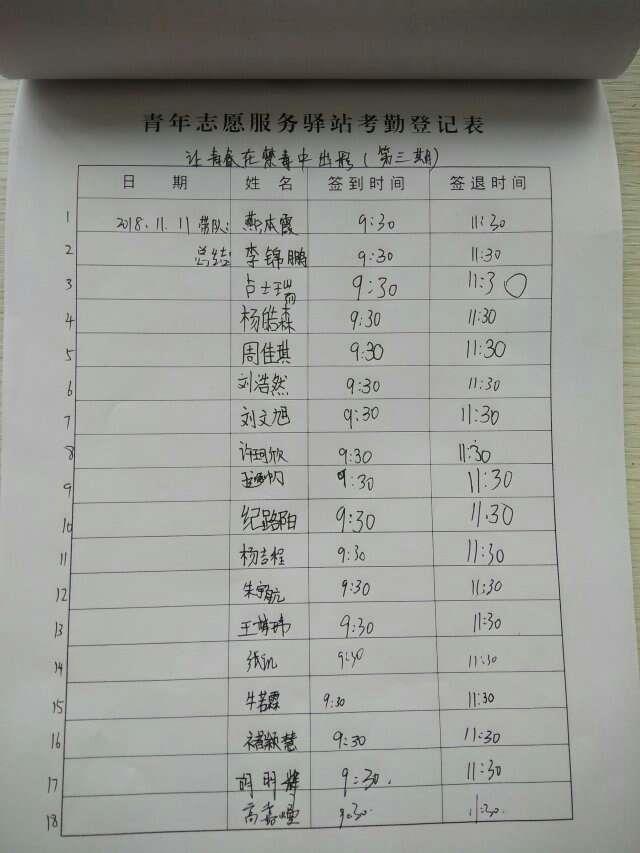 青年志愿服务驿站考勤登记表
让青春在禁毒中出彩(第三期)
日 期 姓 名 签到时间 签退时间
1 2018.11.11 带队: 燕杰霞 9:30 11:30
2 总结: 李锦鹏 9:30 11:30
3 卢士瑞 9:30 11:30
4 杨皓森 9:30 11:30
5 周佳琪 9:30 11:30
6 刘浩然 9:30 11:30
7 刘文旭 9:30 11:30
8 许珂欣 9:30 11:30
9 9:30 11:30
10 纪路阳 9:30 11.30
11 杨吉程 9:30 11:30
12 朱宇航 9:30 11:30
13 王梦玮 9:30 11:30
14 张帆 9:30 11:30
15 牛若霖 9:30 11:30
16 褚颖慧 9:30 11:30
17 胡明辉 9:30. 11:30
18 高嘉曈 9:30. 11:30.